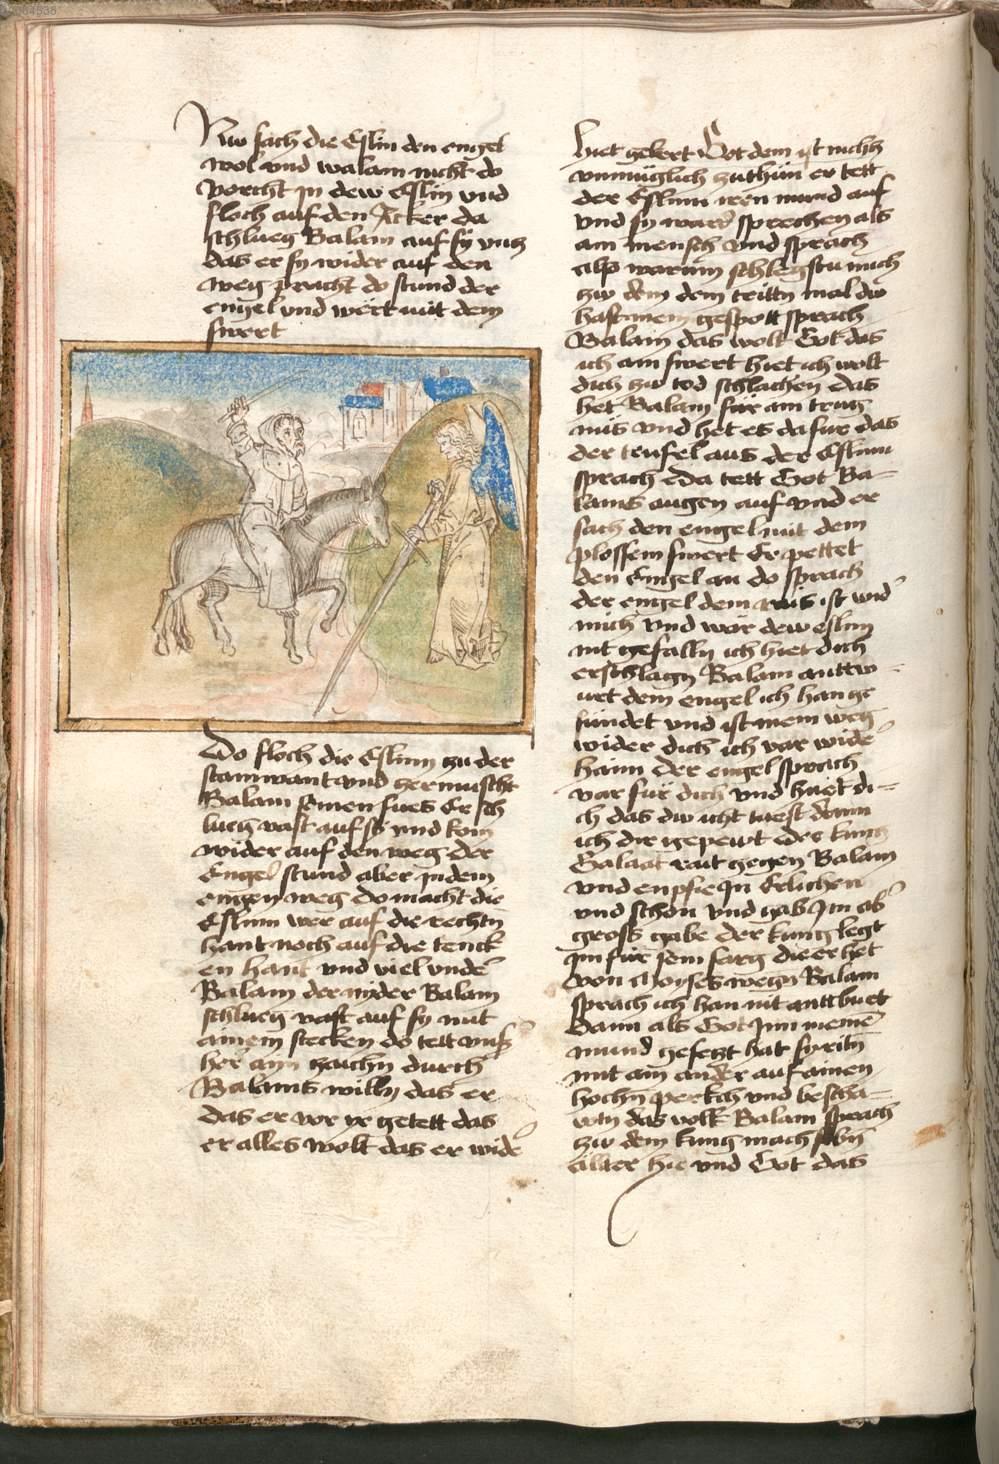 Nw sach die Eslin den engel
wol vnd walam nicht do
vorcht in dew Eslin vnd
floch auf den Acker da
schlueg Balam auf sy vntz
das er sy wider auf den
weg pracht do stund der
engel vnd wert mit dem
swert
Do floch die Eslinn zu der
stainwant vnd zermuscht
Balam seinen fues Er sch
lueg vast auf sy vnd kom
wider auf den weg der
Engel stund aber in dem
engen weg Do macht die
Eslinn wer auf die rechtn
hant noch auf die tenck
en hant vnd viel vnder
Balam der nyder Balam
schlueg vast auf sy mit
ainem stecken do tett vnser
her ain zaichn durch
Balams willn das er
das er vor getett das
er alles wolt das er wider
hiet gekert Got dem ist nichts
vnmüglich zuthün er tett
der Eslinn iren mund auf
vnd sy ward sprechen als
ain mensch vnd sprach
also warum schlegstu mich
zw dem dem tritten mal dw
hast mein gespott sprach
Balam das wolt Got das
ich ain swert hiet ich wolt
dich zw tod schlachen das
het Balam für ain trug
nus vnd het es da für das
der teufel aus der Eslinn
sprach eda tett Got Ba-
lams augen auf vnd er
sach den engel mit dem
plossem swert Er pettet
den Engel an do sprach
der engel dein rais ist wider
mich vnd wär dew eslin
nit gefalln ich hiet dich
erschlagn Balam antt-
urt dem engel ich han ge
sündet vnd ist mein weg
wider dich ich var wider
haim der engel sprach
var für dich vnd huet di-
ch das dw icht tuest dann
ich dir gepewt Der kunig
Balaat rait gegen Balam
vnd enpfie in Erlichen
vnd schon vnd gab im ob
gross gabe der kunig legt
im für sein sarg die er het
von Moyses wegn Balam
sprach ich han nit anttburt
dann als Got inn meinen
mund gesetzt hat sy ritn
mit ain ander auf ainen
hochn perkch vnd bescha-
wtn das volk Balam sprach
zw dem kunig mach sibn
älter hie vnd Got das